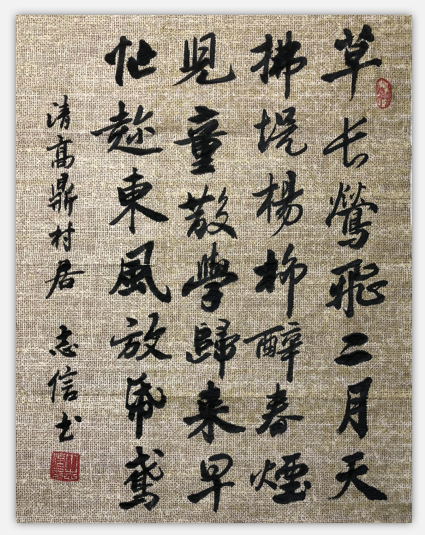 草长鶯飛二月天
拂堤楊柳醉春煙
児童散學歸来早
忙趂東風放帋鳶
清高鼎村居 志信书